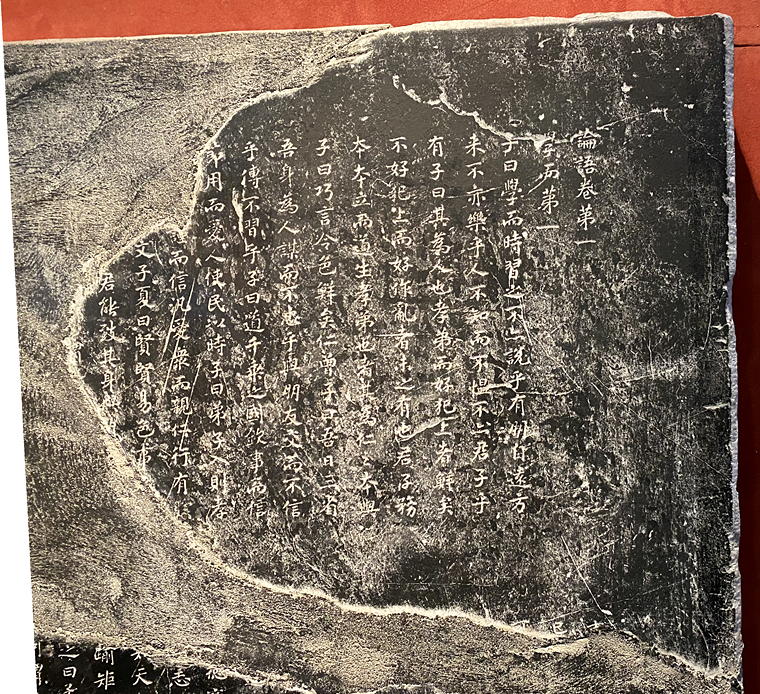 論語卷第一
學而第一
子曰學而時習之不亦説乎有朋自遠方
来不亦樂乎人不知而不愠不亦君子乎
有子曰其為人也孝弟而好犯上者鮮矣
不好犯上而好作亂者未之有也君子務
本本立而道生孝弟也者其為仁之本與
子曰巧言令色鮮矣仁曾子曰吾日三省
吾身為人謀而不忠乎與朋友交而不信
乎傳不習乎子曰道千乘之國敬事而信
節用而愛人使民以時子曰弟子入則孝
而信汎愛衆而親仁行有餘
文子夏曰賢賢易色事
君能致其身
志
矣
踰矩
之曰